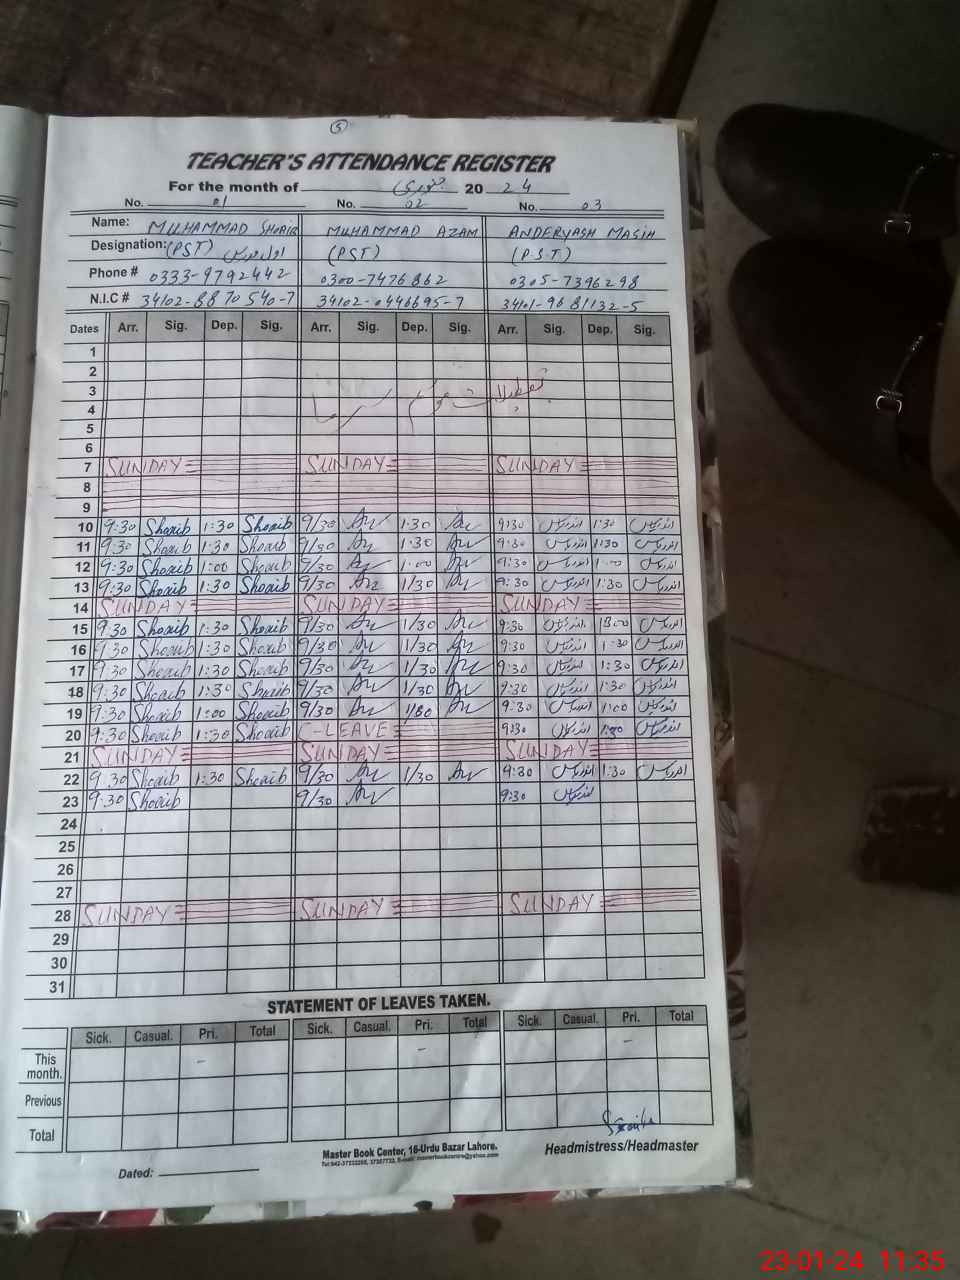 5
TEACHER'S ATTENDANCE REGISTER
For the month of جنوری 20 24
No. 01 No. 02 No. 03
Name: MUHAMMAD SHOAIB MUHAMMAD AZAM ANDERYASH MASIH
Designation: (PST) اول مدرس (PST) (P.S.T)
Phone # 0333-9792442 0300-7476862 0305-7396298
N.I.C # 34102-8870540-7 34102-0446695-7 34101-9681132-5
Dates Arr. Sig. Dep. Sig. Arr. Sig. Dep. Sig. Arr. Sig. Dep. Sig.
1
2
3 تعطیلات موسم سرما
4
5
6
7 SUNDAY SUNDAY SUNDAY
8
9
10 9:30 Shoaib 1:30 Shoaib 9/30 1:30 9:30 اندریاس 1:30 اندریاس
11 9:30 Shoaib 1:30 Shoaib 9/30 1:30 9:30 اندریاس 1:30 اندریاس
12 9:30 Shoaib 1:00 Shoaib 9/30 1:00 9:30 اندریاس 1:00 اندریاس
13 9:30 Shoaib 1:30 Shoaib 9/30 1/30 9:30 اندریاس 1:30 اندریاس
14 SUNDAY SUNDAY SUNDAY
15 9:30 Shoaib 1:30 Shoaib 9/30 1/30 9:30 اندریاس اندریاس
16 9:30 Shoaib 1:30 Shoaib 9/30 1/30 9:30 اندریاس 1:30 اندریاس
17 9:30 Shoaib 1:30 Shoaib 9/30 1/30 9:30 اندریاس 1:30 اندریاس
18 9:30 Shoaib 1:30 Shoaib 9/30 1/30 9:30 اندریاس 1:30 اندریاس
19 9:30 Shoaib 1:00 Shoaib 9/30 9:30 اندریاس 1:00 اندریاس
20 9:30 Shoaib 1:30 Shoaib C-LEAVE 9:30 اندریاس اندریاس
21 SUNDAY SUNDAY SUNDAY
22 9:30 Shoaib 1:30 Shoaib 9/30 1/30 9:30 اندریاس 1:30 اندریاس
23 9:30 Shoaib 9/30 9:30 اندریاس
24
25
26
27
28 SUNDAY SUNDAY SUNDAY
29
30
31
STATEMENT OF LEAVES TAKEN.
Sick. Casual. Pri. Total Sick. Casual. Pri. Total Sick. Casual. Pri. Total
This month. – – –
Previous
Total
Master Book Center, 16-Urdu Bazar Lahore.
Headmistress/Headmaster
Dated:
23-01-24 11:35